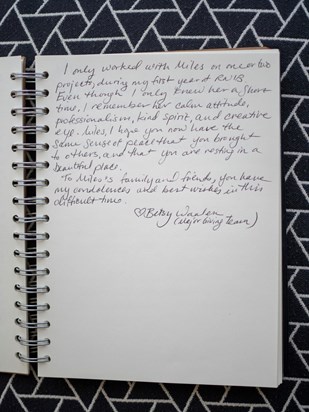 I only worked with Miles on one or two
projects, during my first year at RNIB.
Even though I only knew her a short
time, I remember her calm attitude,
professionalism, kind spirit, and creative
eye. Miles, I hope you now have the
same sense of peace that you brought
to others, and that you are resting in a
beautiful place.
To Miles's family and friends, you have
my condolences and best wishes in this
difficult time.
♡ Betsy
(Major Giving Team)